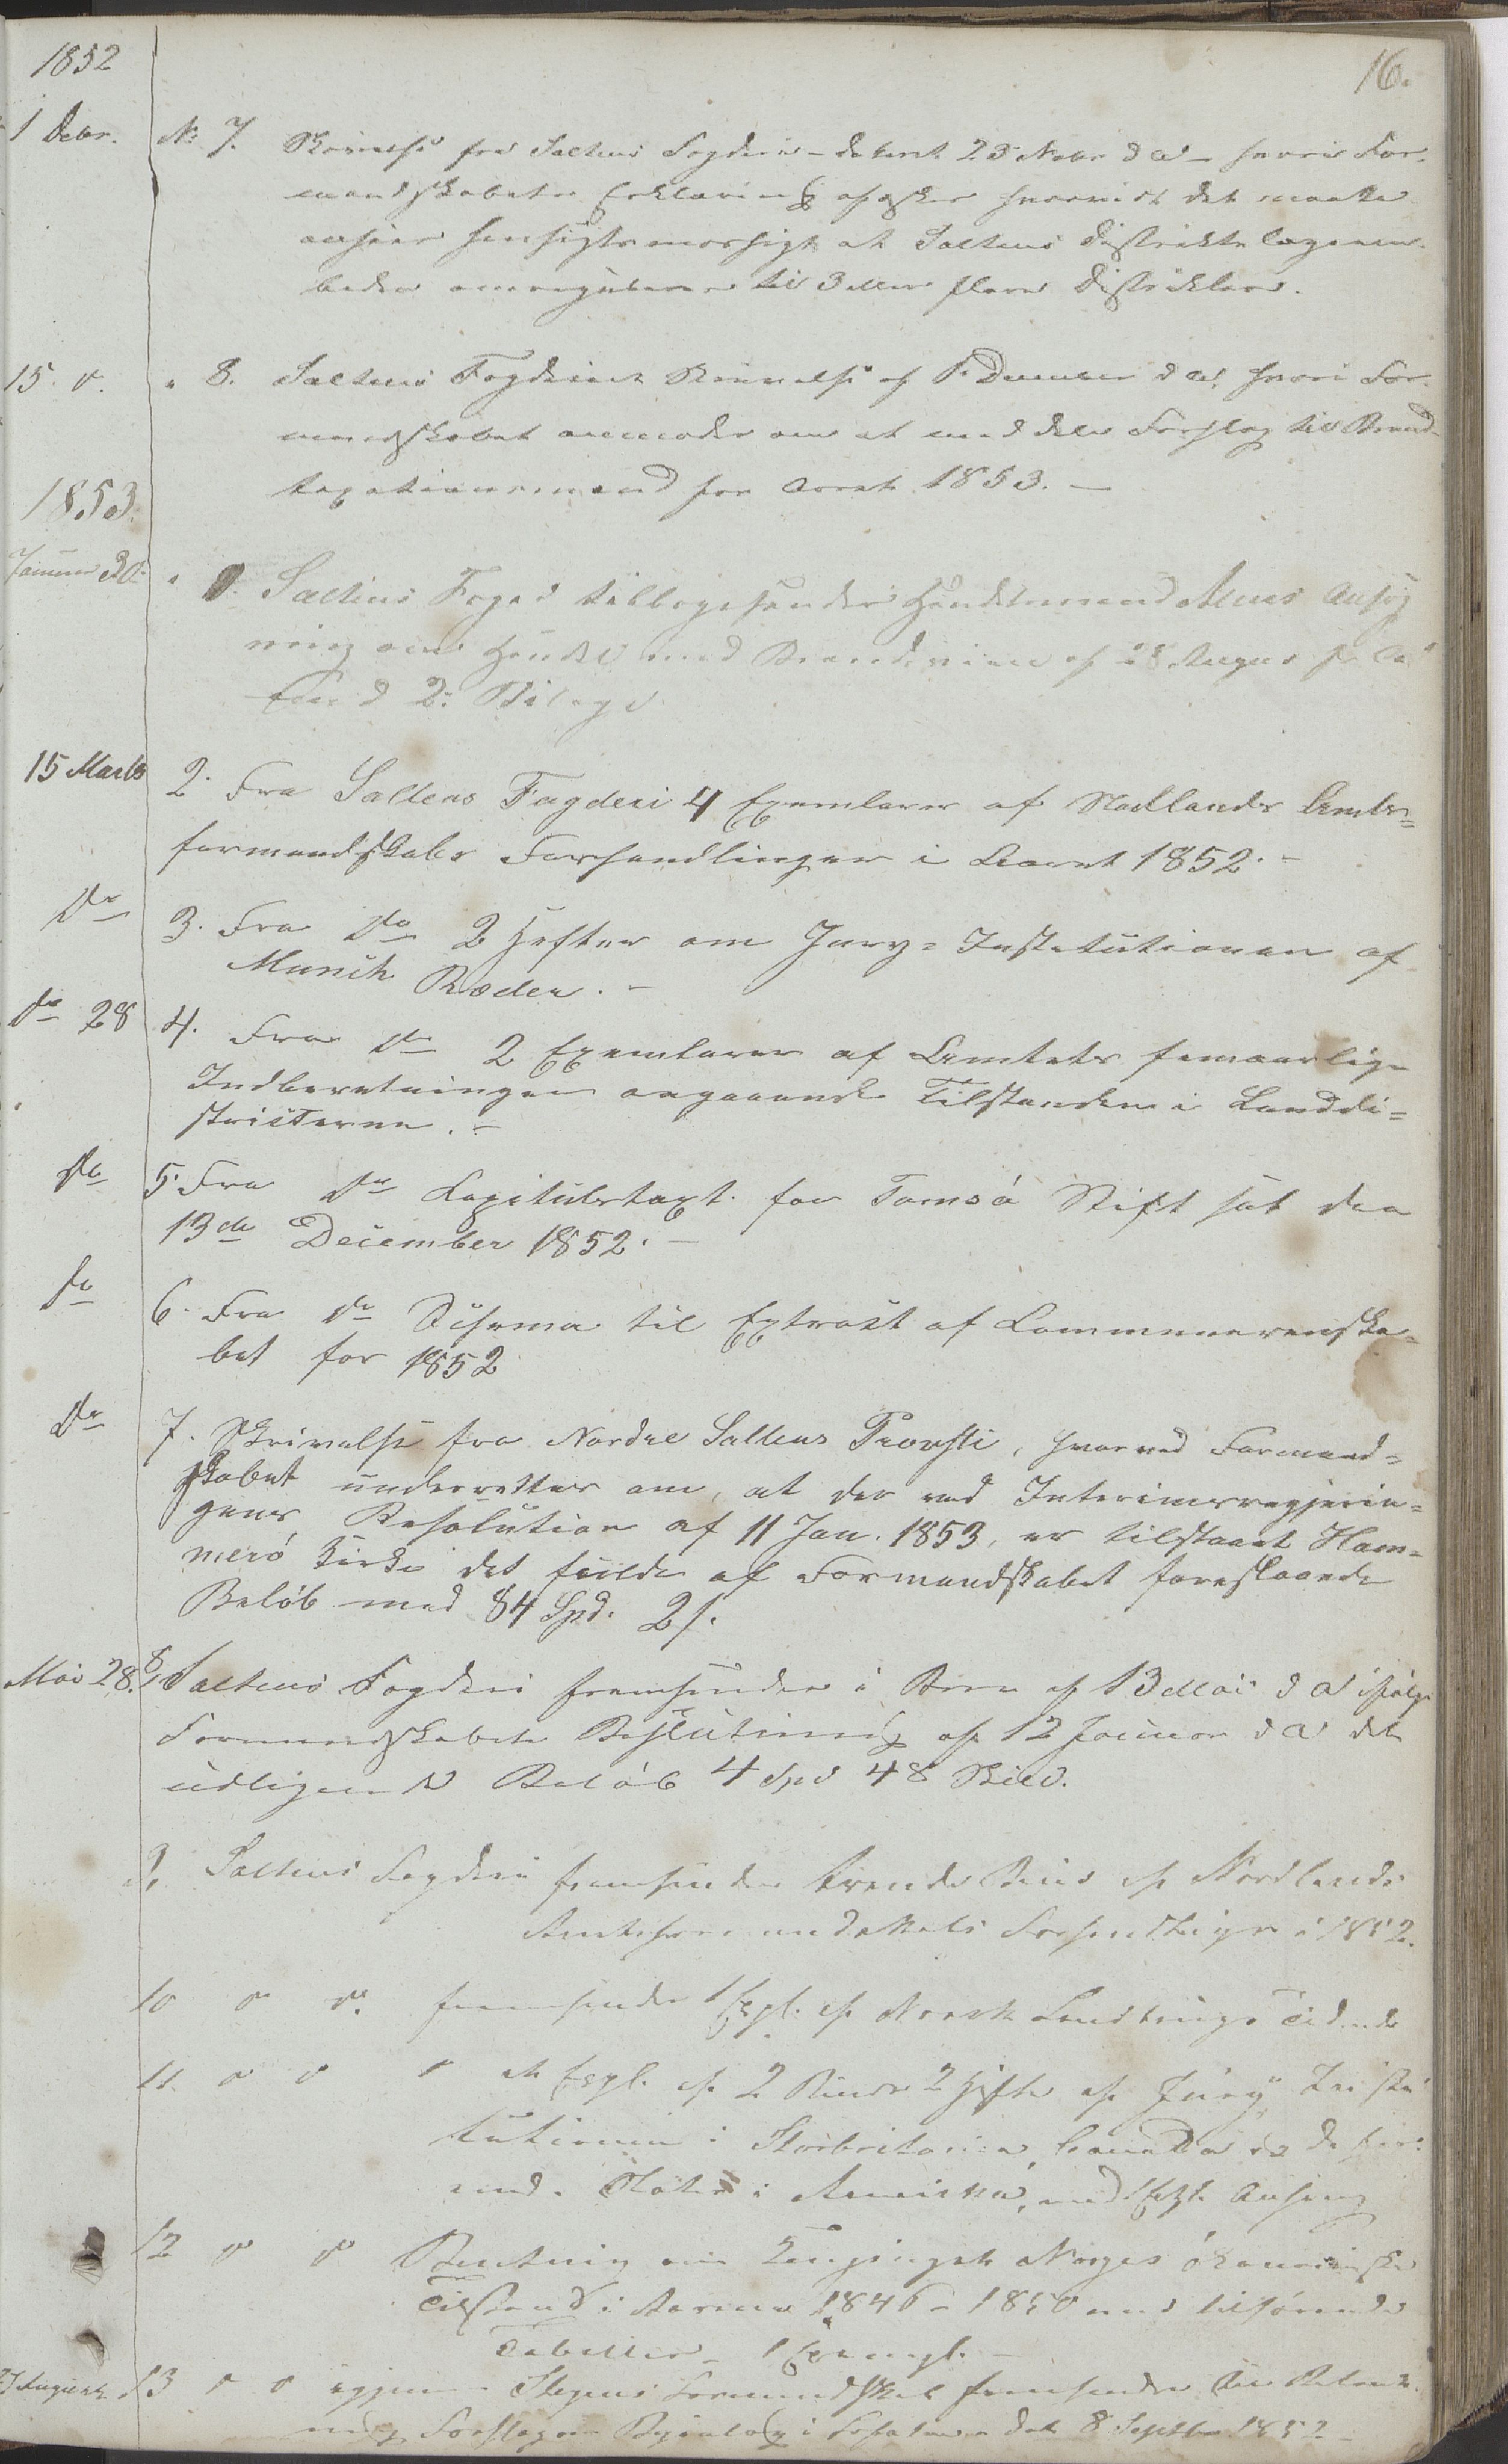 1852
16.
1 Debr. No 7. Skrivelse fra Saltens Fogderie - dateret 23 Novbr d A - hvori For-
mandskabets Erklæring afæsker hvorvidt det maatte
ansees hensigtsmæssigt at Saltens Distriktslægeem-
bede omreguleres til 3 eller flere Distrikter.
15 d. " 8. Saltens Fogderies Skrivelse af 1 December d A. hvori For-
mandskabet anmodes om at meddele Forslag til Brand-
taxationsmænd for Aaret 1853. -
1853.
Januar " Saltens Foged tilbagesender Handelsmand Ansøg
ning om Handel med Brændeviin af 28 August f. A
med 2 Bilage
15 Marts 2. Fra Saltens Fogderi 4 Exemlarer af Nordlands Amts=
formandskabs Forhandlinger i Aaret 1852. -
do 3. Fra do 2 Hefter om Jury=Institutionen af
Munch Ræder. -
do 28 4. Fra do 2 Exemlarer af Amtets femaarlige
Indberetninger angaaende Tilstanden i Landdi=
stricterne. -
do 5 Fra do Capitulstaxt for Tomsö Stift sat den
13de December 1852. -
do 6. Fra do Schema til Extract af Communerenska=
bet for 1852
do 7. Skrivelse fra Nordre Saltens Provsti, hvorved Formand=
skabet underrettes om, at der ved Interimsregjerin=
gens Resolution af 11 Jan. 1853, er tilstaaet Ham=
merö Kirke det fulde af Formandskabet foreslaaede
Belöb med 84 Spd. 2 s.
Mai 28. 8, Saltens Fogderi fremsender i Brev af 13 Mai d A ifølge
Formandskabets Beslutning af 12 Januar d A det
udlignede Belöb 4 Spd 48 Skill.
9, Saltens Fogderi fremsender trende Bind af Nordlands
Amtsformandskabs Forhandlinger i 1852.
10 do do. fremsender 1 Expl. af Norsk Landtings Tidende
11. do do do et Expl. af 2 Binds 2 Hefte af Jury Insti
tutionen i Storbritanien, Canada og de for-
ened. Stater i Amerikka, med Anhang
12 do do Beretning om Kongeriget Norges ökonomiske
Tilstand i Aarene 1846 - 1850 med tilhörende
Tabeller - 1 Exempl. -
August 13 do do igjen Stegens Formandskab fremsendte
Forslag i dat 8 Septbr 1852 -